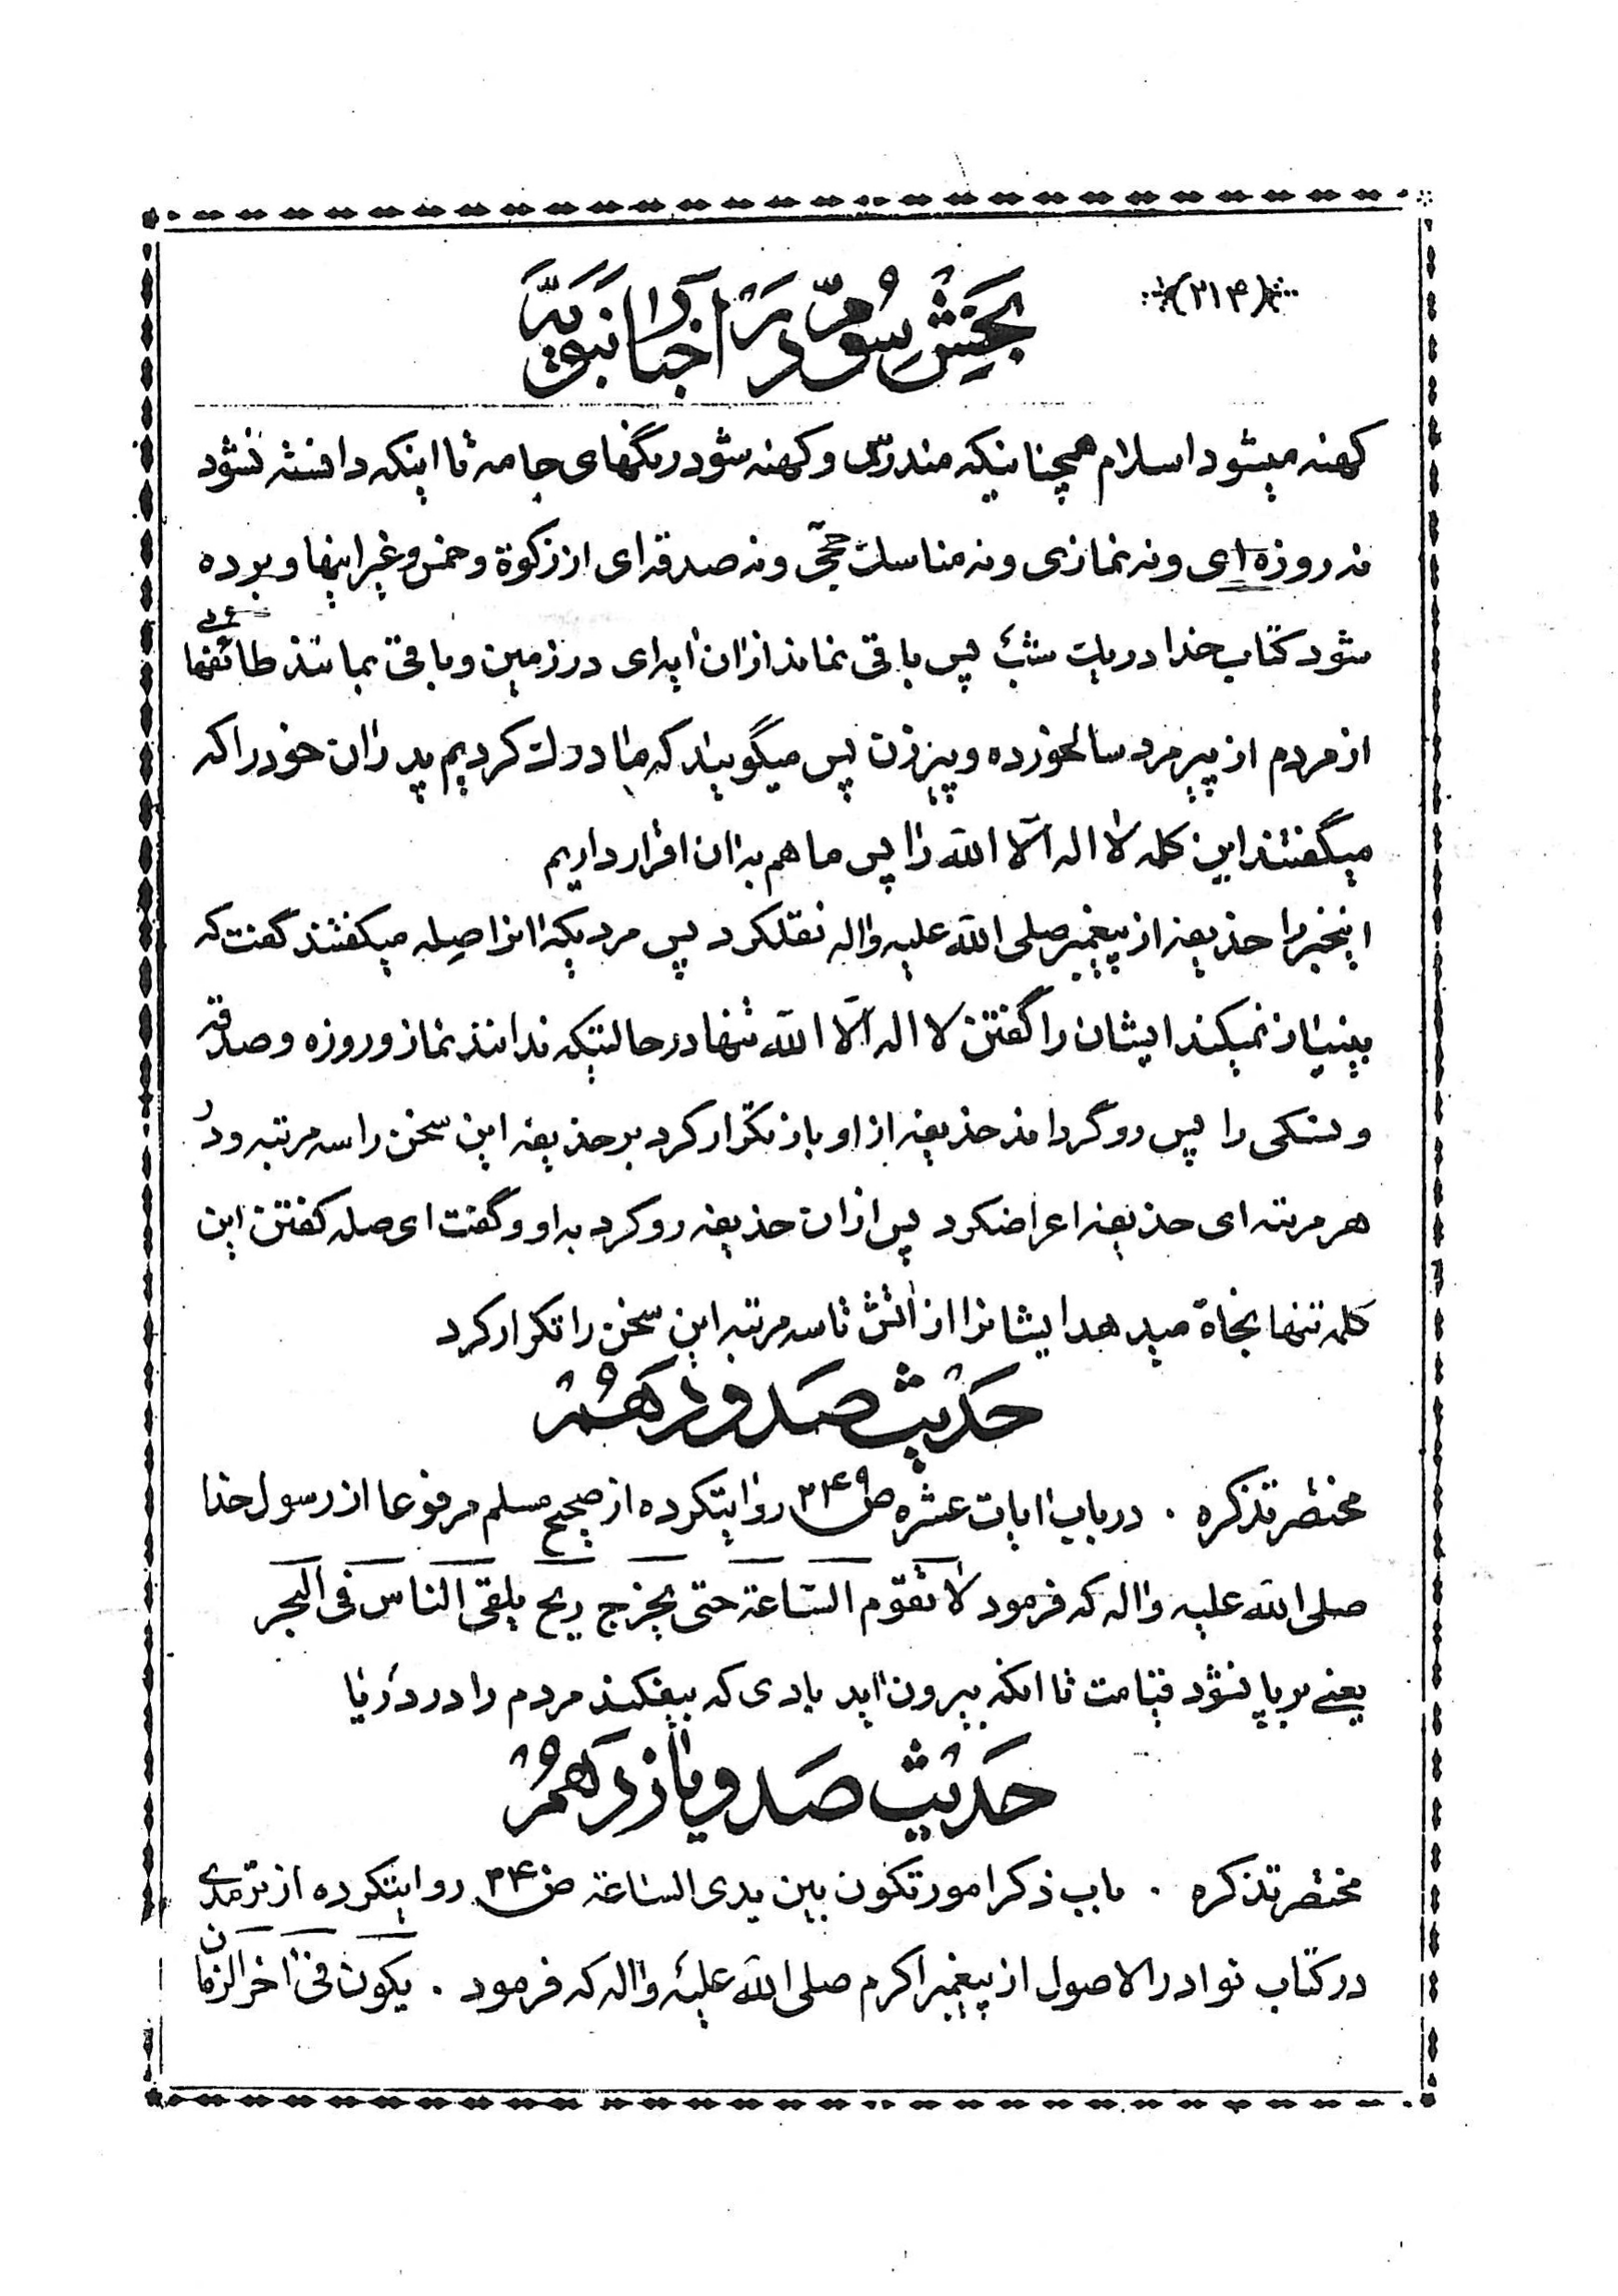 (۲۱۴)
بخش سوّم در اخبار نبویّه
کهنه میشود اسلام همچنانیکه مندرس و کهنه شود رنگهای جامه تا اینکه دانسته نشود
نه روزه ای و نه نمازی و نه مناسک حجّی و نه صدقه ای از زکوة و خمس و غیر اینها و برده
شود کتاب خدا در یک شب پس باقی نماند از آن آیه ای در زمین و باقی بمانند طائفهائی
از مردم از پیر مرد سالخورده و پیرزن پس میگویند که ما ادراک کردیم پدران خود را که
میگفتند این کلمه لا اله الّا الله را پس ما هم به آن اقرار داریم
اینخبر را حذیفه از پیغمبر صلی الله علیه و اله نقلکرد پس مردیکه او را صِله میگفتند گفت که
بی نیاز نمیکند ایشان را گفتن لا اله الّا الله تنها در حالتیکه ندانند نماز و روزه و صدقه
و نسکی را پس رو گرداند حذیفه از او باز تکرار کرد بر حذیفه این سخن را سه مرتبه و در
هر مرتبه ای حذیفه اعراضکرد پس از ان حذیفه رو کرد به او و گفت ای صله گفتن این
کلمه تنها نجاة میدهد ایشانرا از اتش تا سه مرتبه این سخن را تکرار کرد
حدیث صد و دهم
مختصر تذکره . در باب ایات عشره ص ۲۴۹ روایتکرده از صحیح مسلم مرفوعا از رسول خدا
صلی الله علیه و اله که فرمود لا تقوم الساعة حتی یخرج ریح یلقی الناس فی البحر
یعنی بر پا نشود قیامت تا انکه بیرون اید بادی که بیفکند مردم را در دریا
حدیث صد و یازدهم
مختصر تذکره . باب ذکر امور تکون بین یدی الساعة ص ۲۴ روایتکرده از ترمدی
در کتاب نوادر الاصول از پیغمبر اکرم صلی الله علیه و اله که فرمود . یکون فی آخر الزمان